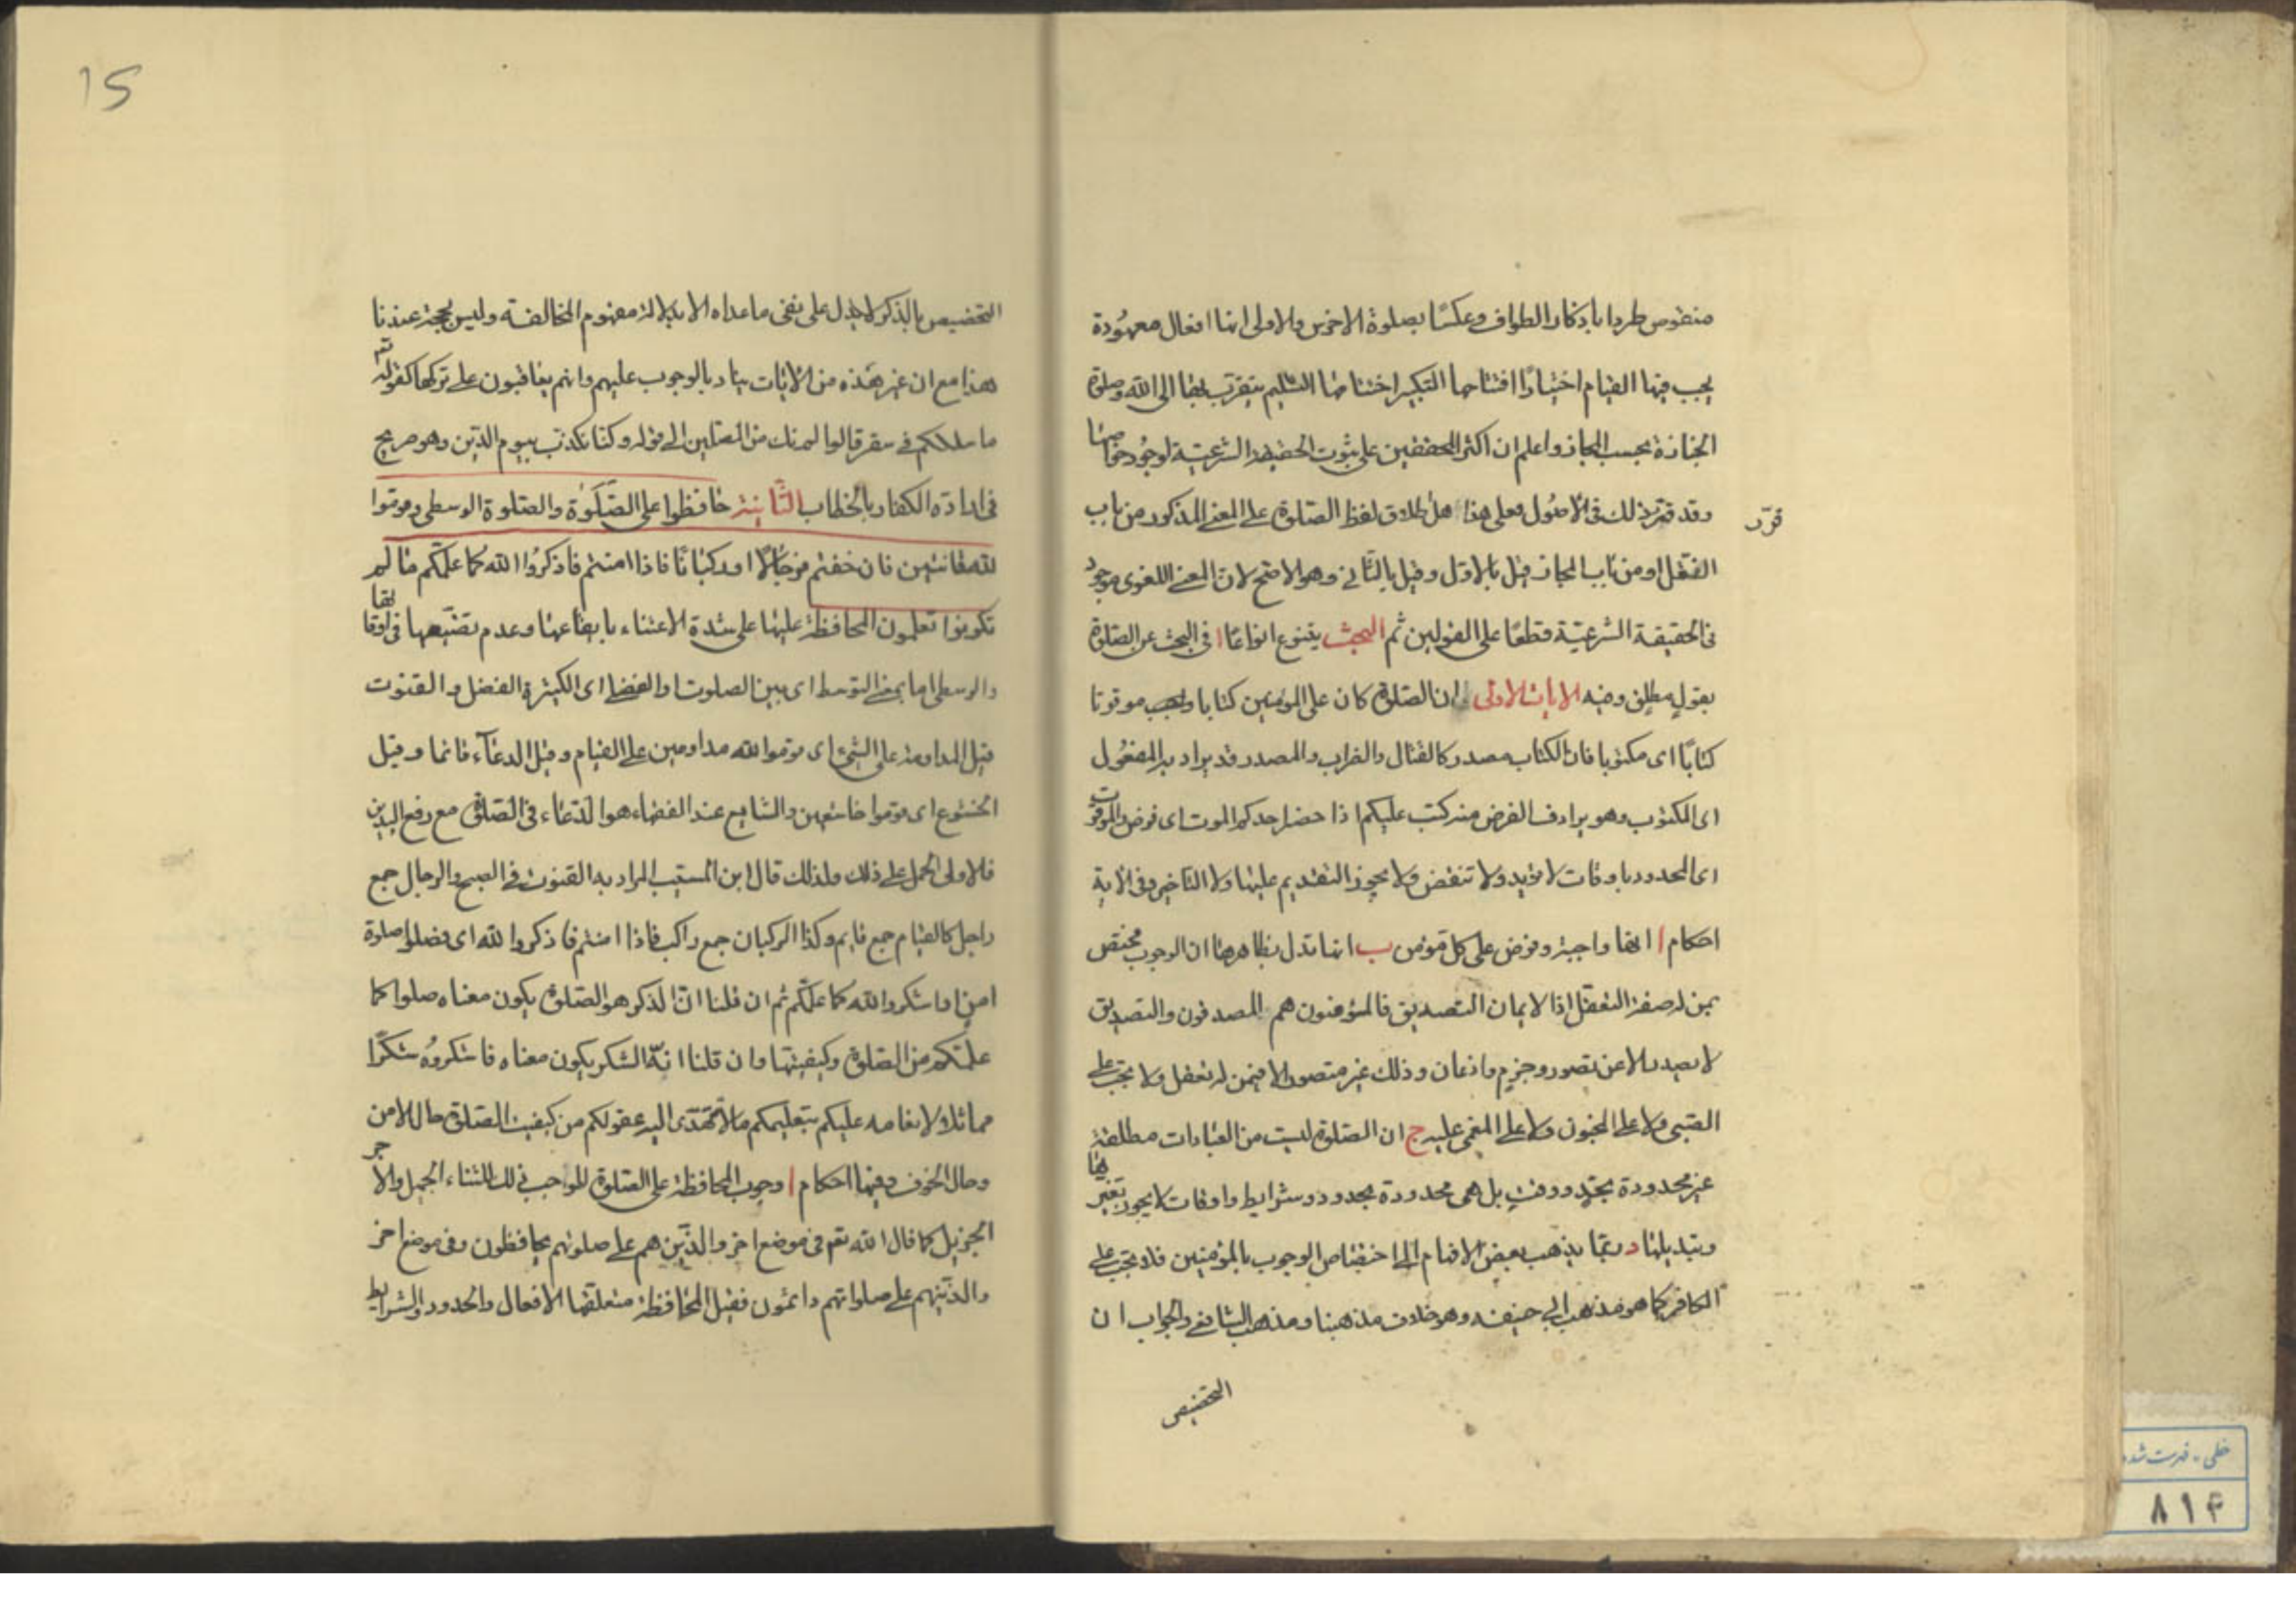 منقوص طردا باذكار الطواف وعكسا بصلوة الاخرس والاولى انها افعال معهودة
يجب فيها القيام اختيارا افتتاحها التكبير اختتامها التسليم يتقرب بها الى الله وصلوة
الجنازة بحسب المجاز واعلم ان اكثر المحققين على ثبوت الحقيقة الشرعية لوجود خواصها
وقد قرر ذلك فى الاصول فعلى هذا هل اطلاق لفظ الصلوة على المعنى المذكور من باب
قرّر
النقل او من باب المجاز قيل بالاول وقيل بالثانى وهو الاصح لان المعنى اللغوى موجود
فى الحقيقة الشرعية قطعا على القولين ثم البحث يتنوع انواعا ا فى البحث عن الصلوة
بقول مطلق وفيه الايات الاولى ان الصلوة كان على المؤمنين كتابا موقوتا
كتابا اى مكتوبا فان الكتاب مصدر كالقتال والضراب والمصدر قد يراد به المفعول
اى المكتوب وهو يرادف الفرض منه كتب عليكم اذا حضر احدكم الموت اى فرض والموقوت
اى المحدود باوقات لا تزيد ولا تنقص ولا يجوز التقديم عليها ولا التاخير وفى الاية
احكام ا انها واجبة وفرض على كل مؤمن ب انها تدل بظاهرها ان الوجوب مختص
بمن له صفة التعقل اذا الايمان التصديق فالمؤمنون هم المصدقون والتصديق
لا يصدر الا عن تصور وجزم واذعان وذلك غير متصور الا فيمن له تعقل ولا يجب على
الصبى ولا على المجنون ولا على المغمى عليه ج ان الصلوة ليست من العبادات مطلقة
غير محدودة بحد ووقت بل هى محدودة بحدود وشرايط واوقات لا يجوز تغييرها
وتبديلها د ربما يذهب بعض الافهام الى اختصاص الوجوب بالمؤمنين فلا يجب على
الكافر كما هو مذهب ابى حنيفه وهو خلاف مذهبنا ومذهب الشافعى والجواب ان
التخصيص
15
التخصيص بالذكر لا يدل على نفى ما عداه الا بدلالة مفهوم المخالفة وليس بحجة عندنا
هذا مع ان غير هذه من الايات ينادى بالوجوب عليهم وانهم يعاقبون على تركها كقوله تع
ما سلككم فى سقر قالوا لم نك من المصلين الى قوله وكنا نكذب بيوم الدين وهو صريح
فى ارادة الكفار بالخطاب الثانية حافظوا على الصلوة والصلوة الوسطى وقوموا
لله قانتين فان خفتم فرجالا او ركبانا فاذا امنتم فاذكروا الله كما علمكم ما لم
تكونوا تعلمون المحافظة عليها على شدة الاعتناء بايقاعها وعدم تضييعها فى اوقاتها
والوسطى اما بمعنى التوسط اى بين الصلوت او الفضلى اى الكثيرة الفضل والقنوت
قيل المداومة على الشئ اى قوموا لله مداومين على القيام وقيل الدعاء قائما وقيل
الخشوع اى قوموا خاشعين والشايع عند الفقهاء هو الدعاء فى الصلوة مع رفع اليدين
فالاولى الحمل على ذلك ولذلك قال ابن المسيب المراد به القنوت فى الصبح والرجال جمع
راجل كالقيام جمع قايم وكذا الركبان جمع راكب فاذا امنتم فاذكروا الله اى فصلوا صلوة
امن او اشكروا الله كما علمكم ثم ان قلنا ان الذكر هو الصلوة يكون معناه صلوا كما
علمتكم من الصلوة وكيفيتها وان قلنا انه الشكر يكون معناه فاشكروه شكرا
مماثلا لانعامه عليكم بتعليمكم ما لا تهتدى اليه عقولكم من كيفية الصلوة حال الامن
وحال الخوف وفيها احكام ا وجوب المحافظة على الصلوة للمواجب ذلك للثناء الجميل والاجر
الجزيل كما قال الله تعم فى موضع اخر والذين هم على صلوتهم يحافظون وفى موضع اخر
والذين هم على صلواتهم دائمون فقيل المحافظة متعلقها الافعال والحدود والشرايط
خطى - فهرست شده
۸۱۴